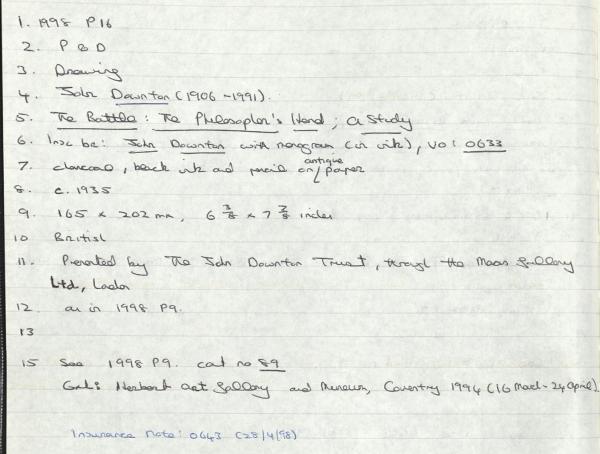 1. 1998 P16
2. P & D
3. Drawing
4. John Downton (1906-1991).
5. The Battle: The Philosopher's Hand; a Study
6. Insc bc: John Downton with monogram (in ink), vo: 0633
7. charcoal, black ink and pencil on antique paper
8. c. 1935
9. 165 x 202 mm, 6 3/8 x 7 7/8 inches
10 British
11. Presented by The John Downton Trust, through the Maas Gallery
Ltd, London
12. as in 1998 P9.
13
15 See 1998 P9. cat no 89
Exh: Herbert Art Gallery and Museum, Coventry 1994 (16 March - 24 April).
Insurance note: 0643 (28/4/98)